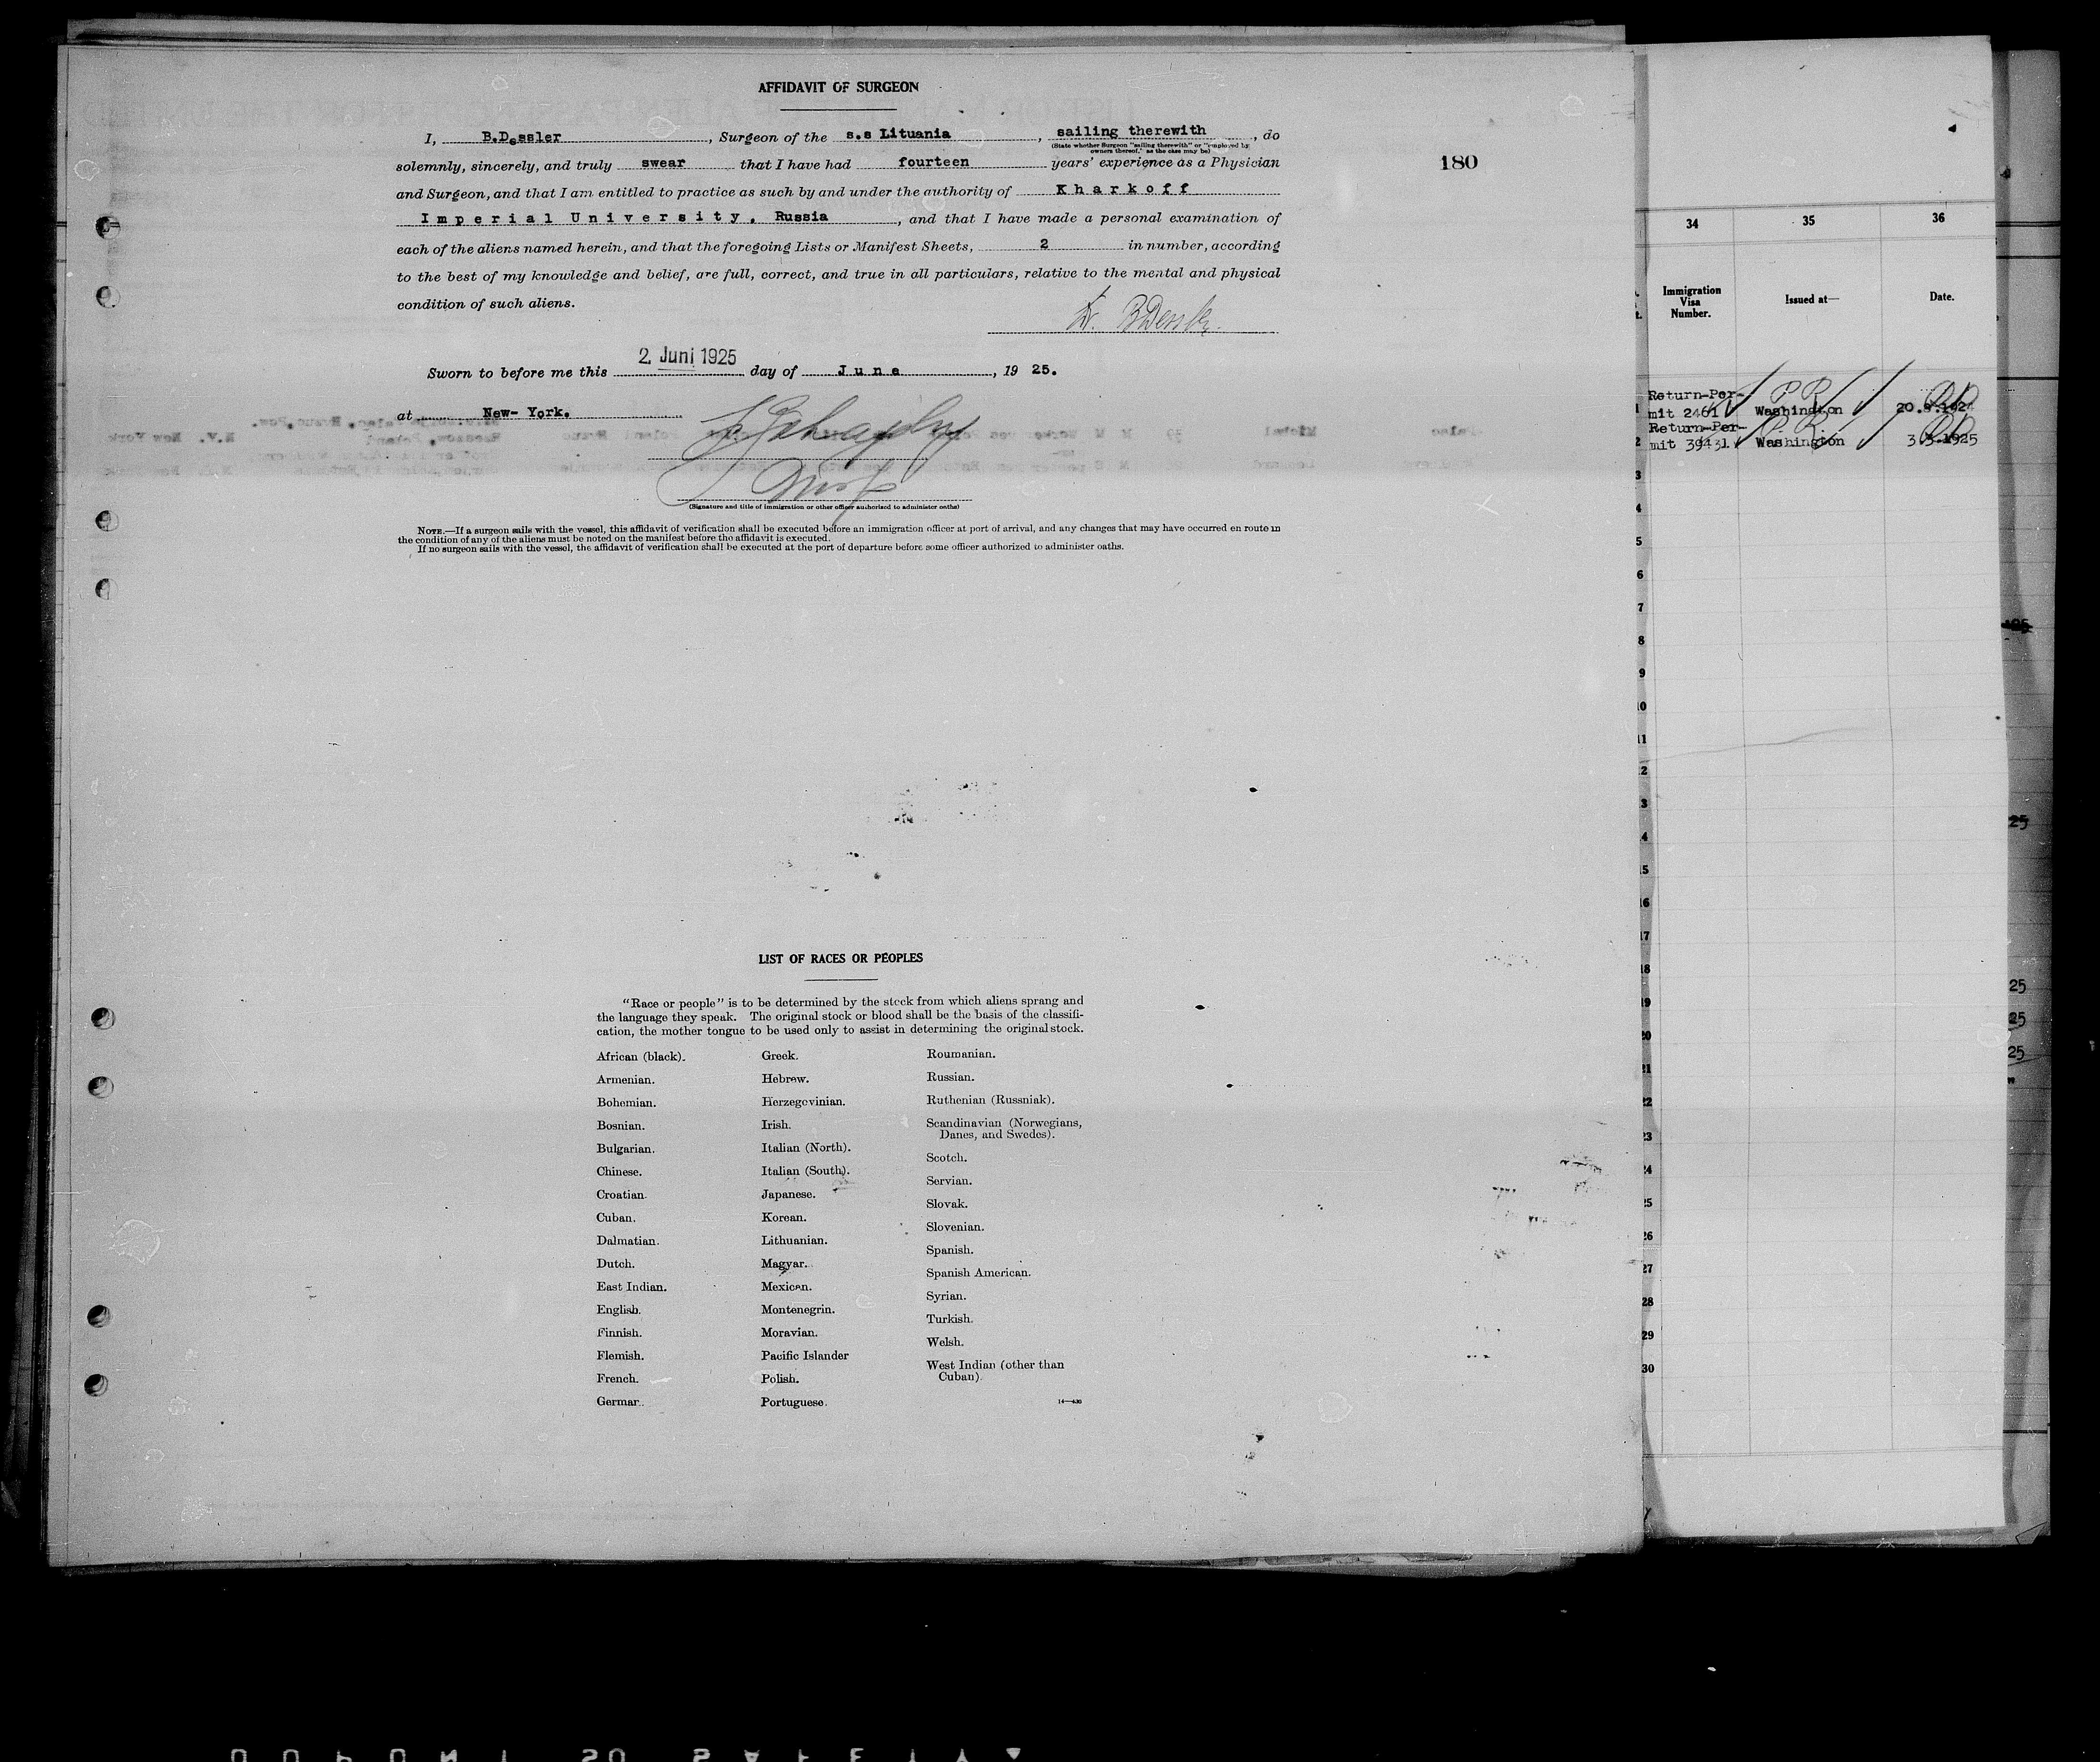 AFFIDAVIT OF SURGEON
I, B.Dessler, Surgeon of the s.s Lituania, sailing therewith, do
(State whether Surgeon "sailing therewith" or "employed by
owners thereof," as the case may be)
solemnly, sincerely, and truly swear that I have had fourteen years' experience as a Physician
180
and Surgeon, and that I am entitled to practice as such by and under the authority of Kharkoff
Imperial University, Russia, and that I have made a personal examination of
each of the aliens named herein, and that the foregoing Lists or Manifest Sheets, 2 in number, according
to the best of my knowledge and belief, are full, correct, and true in all particulars, relative to the mental and physical
condition of such aliens.
Dr. BDessler
Sworn to before me this 2. Juni 1925 day of June, 19 25.
at New-York.
(Signature and title of immigration or other officer authorized to administer oaths)
NOTE.—If a surgeon sails with the vessel, this affidavit of verification shall be executed before an immigration officer at port of arrival, and any changes that may have occurred en route in
the condition of any of the aliens must be noted on the manifest before the affidavit is executed.
If no surgeon sails with the vessel, the affidavit of verification shall be executed at the port of departure before some officer authorized to administer oaths.
LIST OF RACES OR PEOPLES
"Race or people" is to be determined by the stock from which aliens sprang and
the language they speak. The original stock or blood shall be the basis of the classifi-
cation, the mother tongue to be used only to assist in determining the original stock.
African (black).
Armenian.
Bohemian.
Bosnian.
Bulgarian.
Chinese.
Croatian.
Cuban.
Dalmatian.
Dutch.
East Indian.
English.
Finnish.
Flemish.
French.
German.
Greek.
Hebrew.
Herzegovinian.
Irish.
Italian (North).
Italian (South).
Japanese.
Korean.
Lithuanian.
Magyar.
Mexican.
Montenegrin.
Moravian.
Pacific Islander
Polish.
Portuguese.
Roumanian.
Russian.
Ruthenian (Russniak).
Scandinavian (Norwegians,
Danes, and Swedes).
Scotch.
Servian.
Slovak.
Slovenian.
Spanish.
Spanish American.
Syrian.
Turkish.
Welsh.
West Indian (other than
Cuban).
14—430
34 35 36
Immigration
Visa
Number.
Issued at—
Date.
Return-Per-
mit 2461 Washington 20.8.1924
Return-Per-
mit 39431. Washington 3.3.1925
P R
P. R.
1
2
3
4
5
6
7
8
9
10
11
12
13
14
15
16
17
18
19
20
21
22
23
24
25
26
27
28
29
30
25
25
25
25